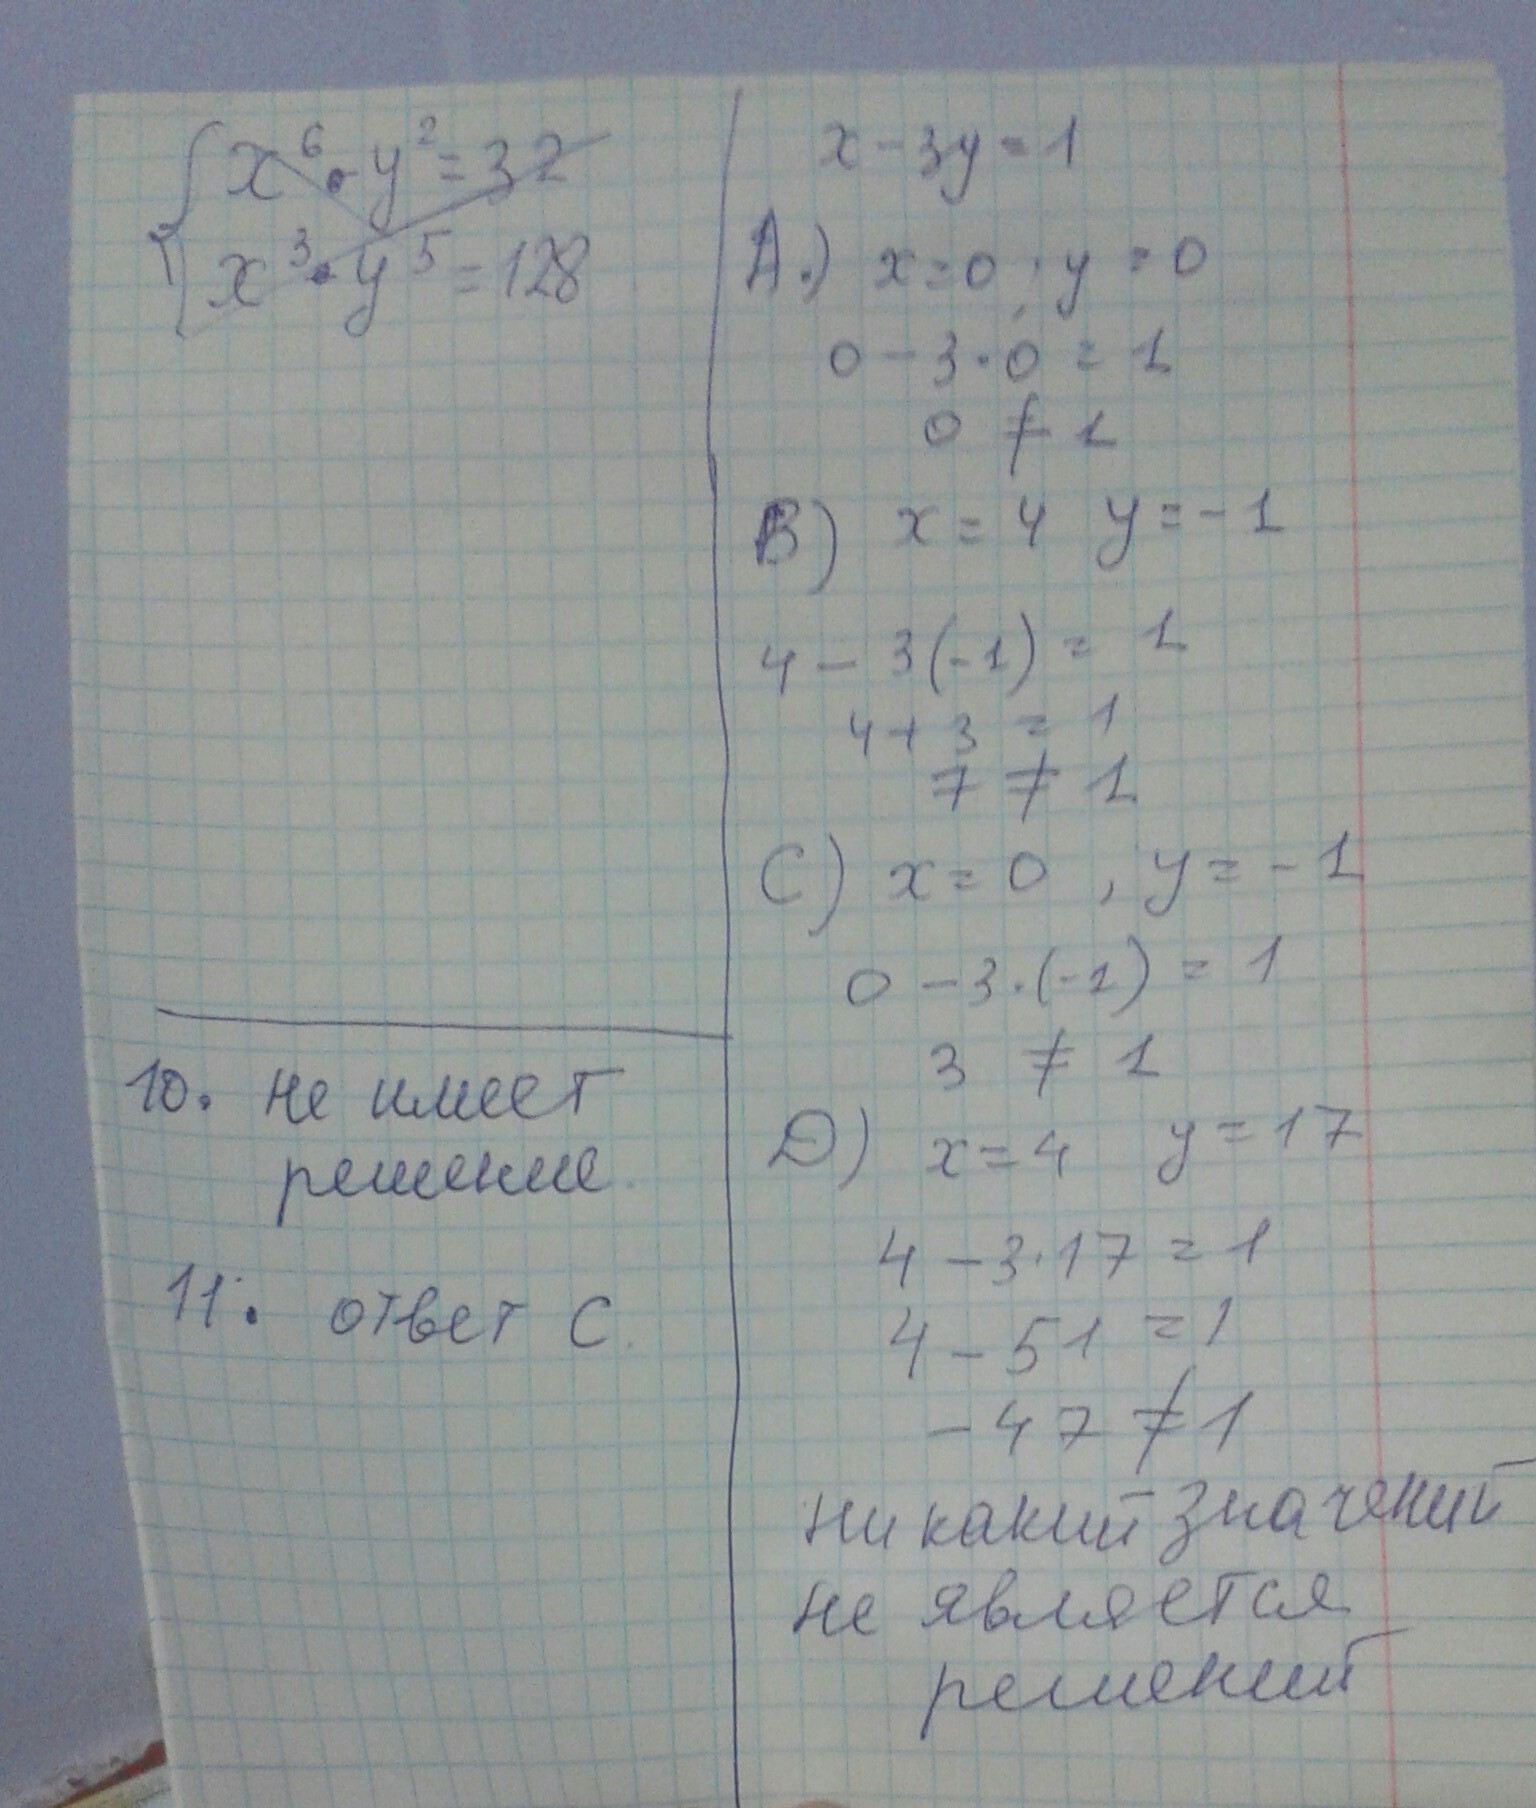 x⁶·y²=32
x³·y⁵=128
10. не имеет
решение.
11. ответ С.
x-3y=1
A.) x=0, y=0
0-3·0=1
0≠1
B) x=4 y=-1
4-3(-1)=1
4+3=1
7≠1
C) x=0, y=-1
0-3·(-1)=1
3≠1
D) x=4 y=17
4-3·17=1
4-51=1
-47≠1
ни какий значений
не является
решений